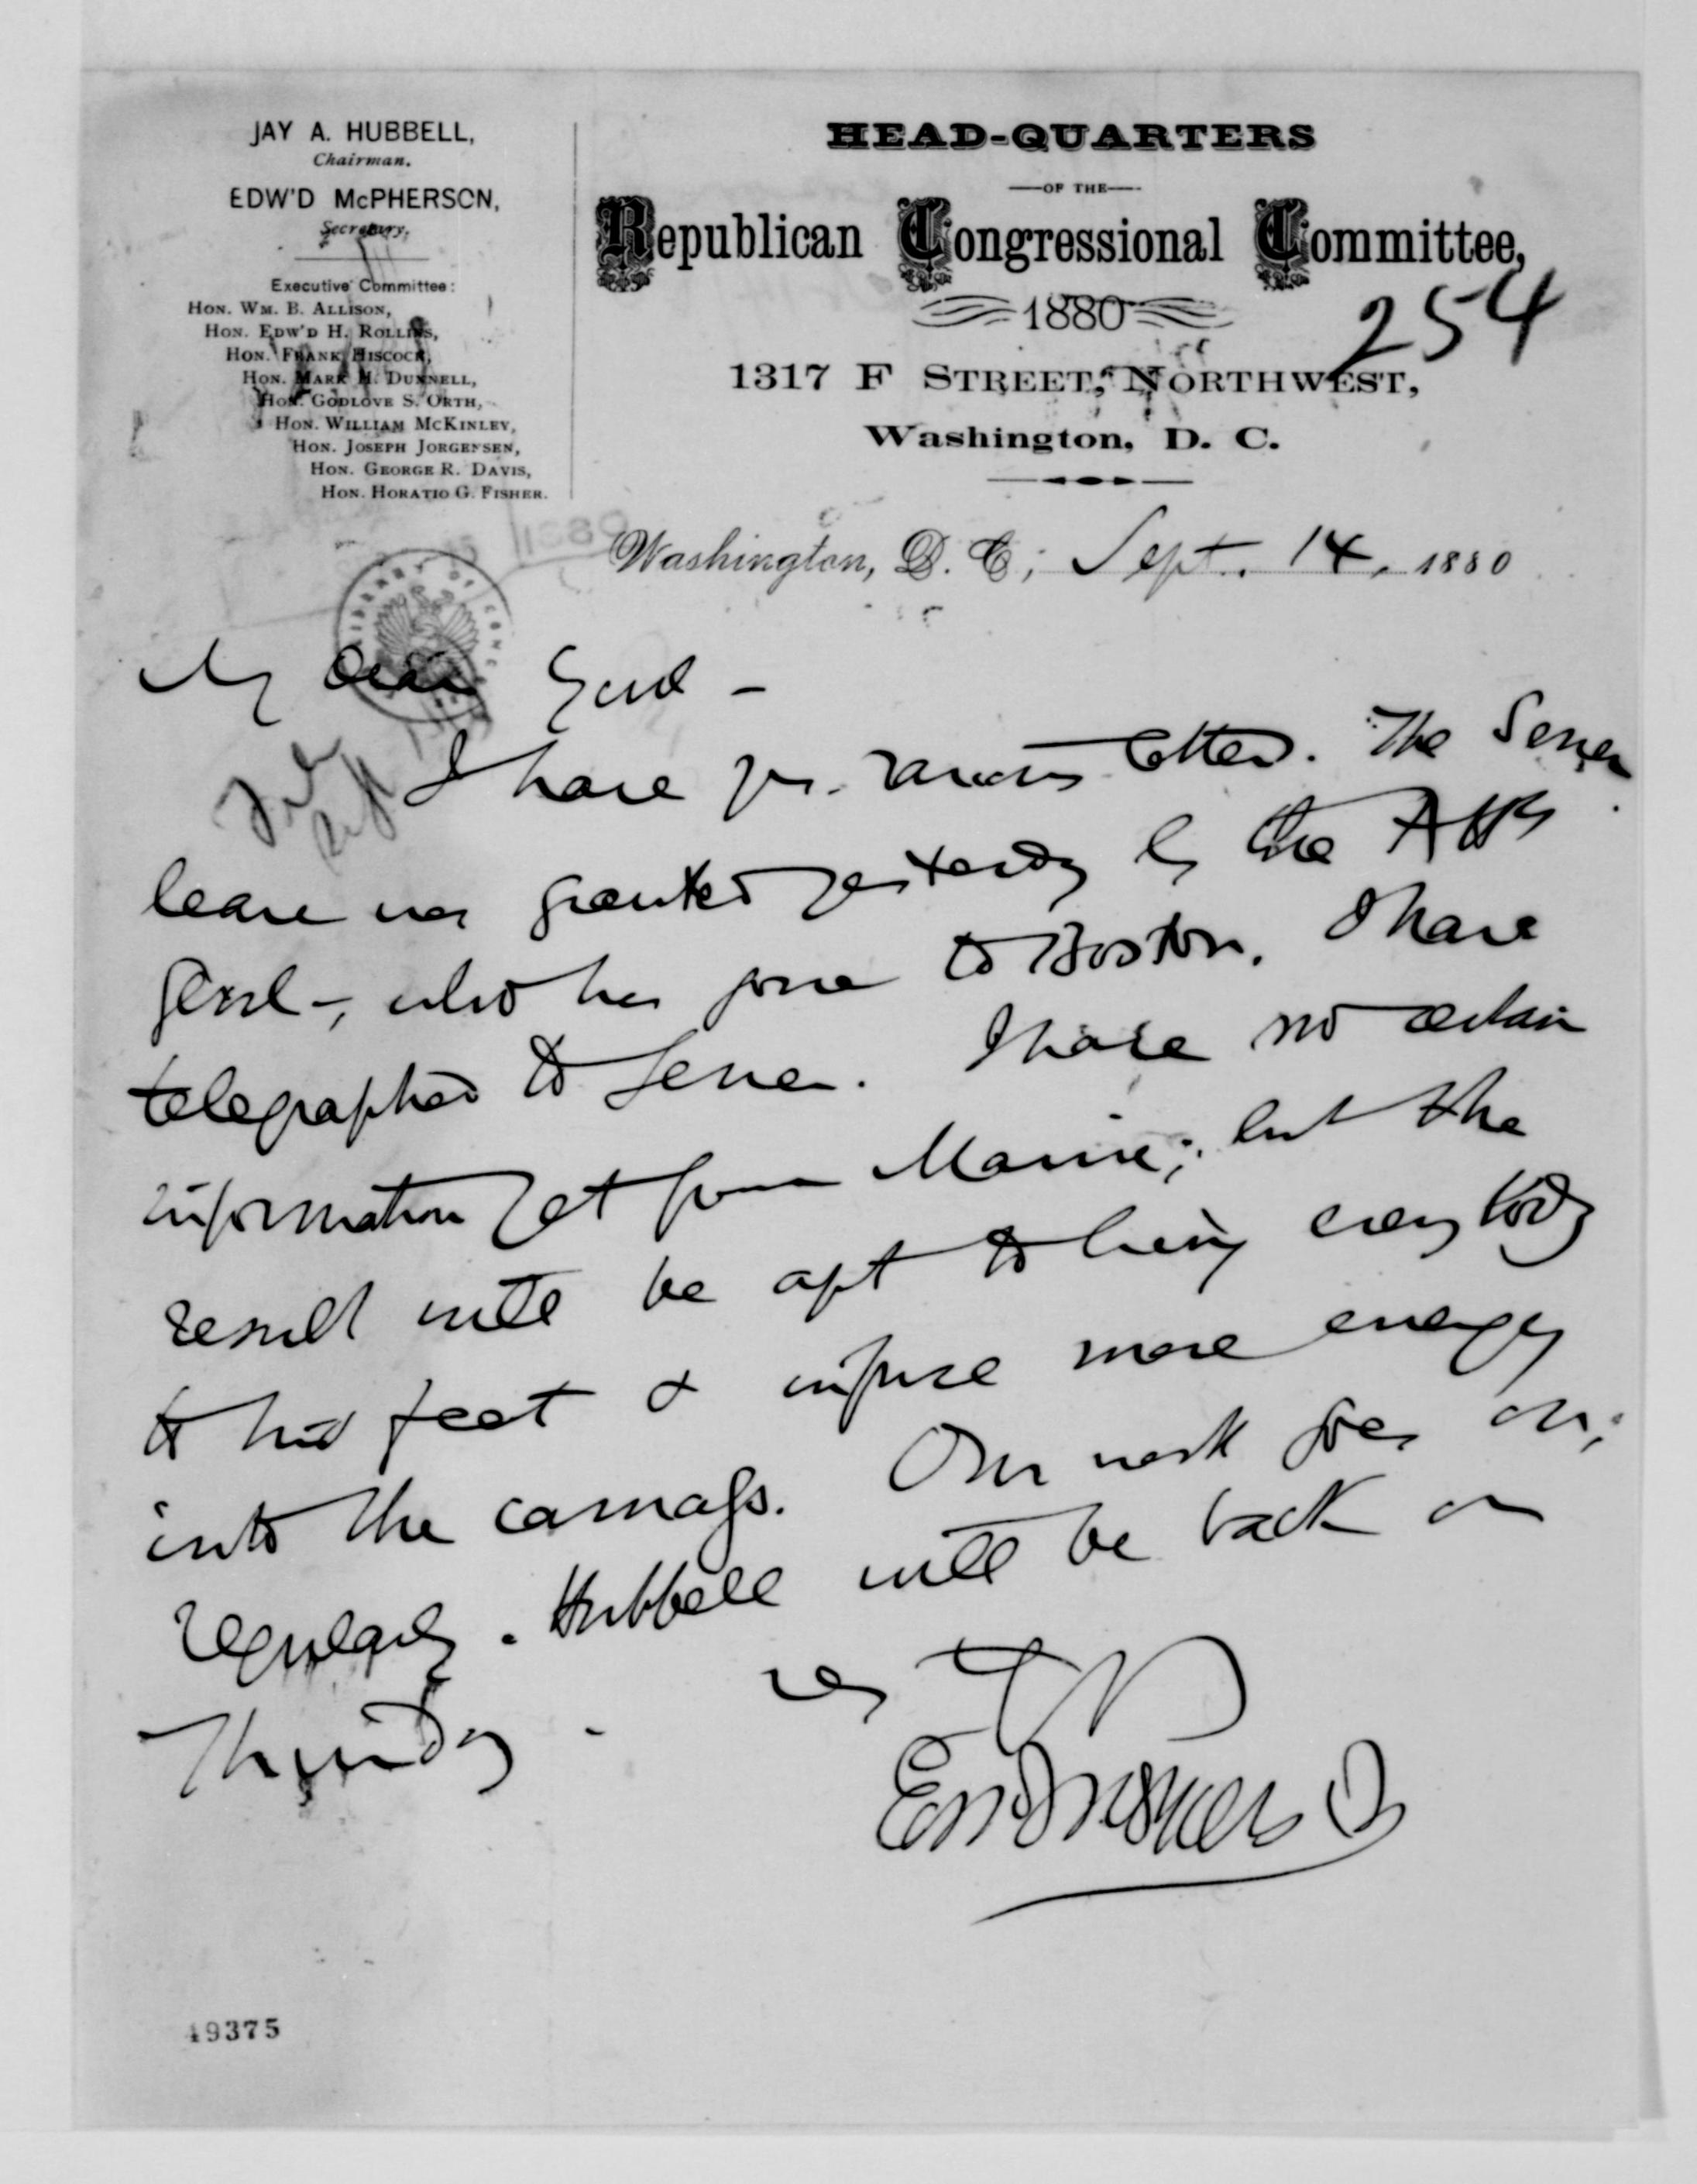 JAY A. HUBBELL,
Chairman.
EDW'D McPHERSON,
Secretary.
Executive Committee:
HON. WM. B. ALLISON,
HON. EDW'D H. ROLLINS,
HON. FRANK HISCOCK,
HON. MARK H. DUNNELL,
HON. GODLOVE S. ORTH,
HON. WILLIAM McKINLEY,
HON. JOSEPH JORGENSEN,
HON. GEORGE R. DAVIS,
HON. HORATIO G. FISHER.
HEAD-QUARTERS
OF THE
Republican Congressional Committee,
1880
254
1317 F STREET, NORTHWEST,
Washington, D. C.
Washington, D. C., Sept. 14, 1880
My dear Genl -
I have yr. various letters. The Sener
leave was granted yesterday by the Atty
Genl -, who has gone to Boston. I have
telegraphed to Sener. I have no certain
information yet from Maine; but the
result will be apt to bring every body
to his feet & infuse more energy
into the campaign. Our work goes on,
regularly. Hubbell will be back on
Thursday -
Very
Edwd McPherson
49375